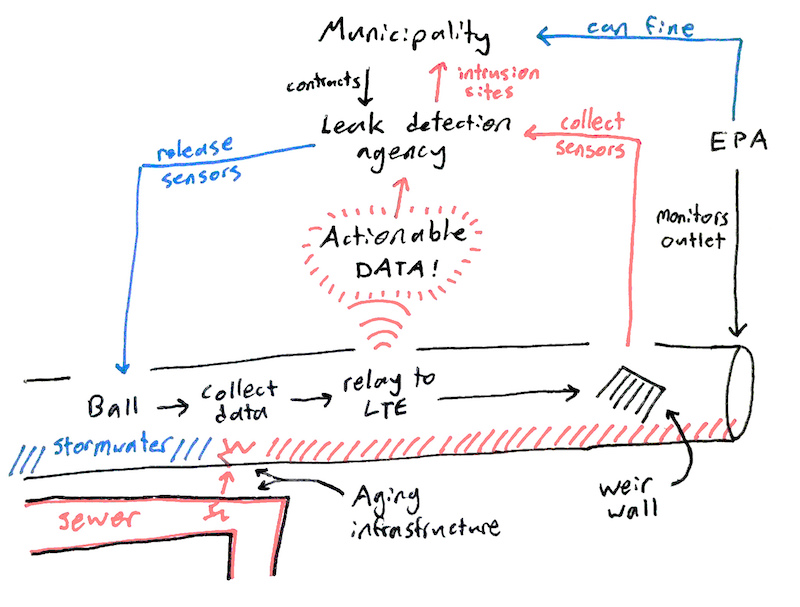 Municipality
can fine
contracts
intrusion
sites
Leak detection
agency
collect
sensors
EPA
release
sensors
monitors
outlet
Actionable
DATA!
Ball
collect
data
relay to
LTE
stormwater
weir
wall
Aging
infrastructure
sewer